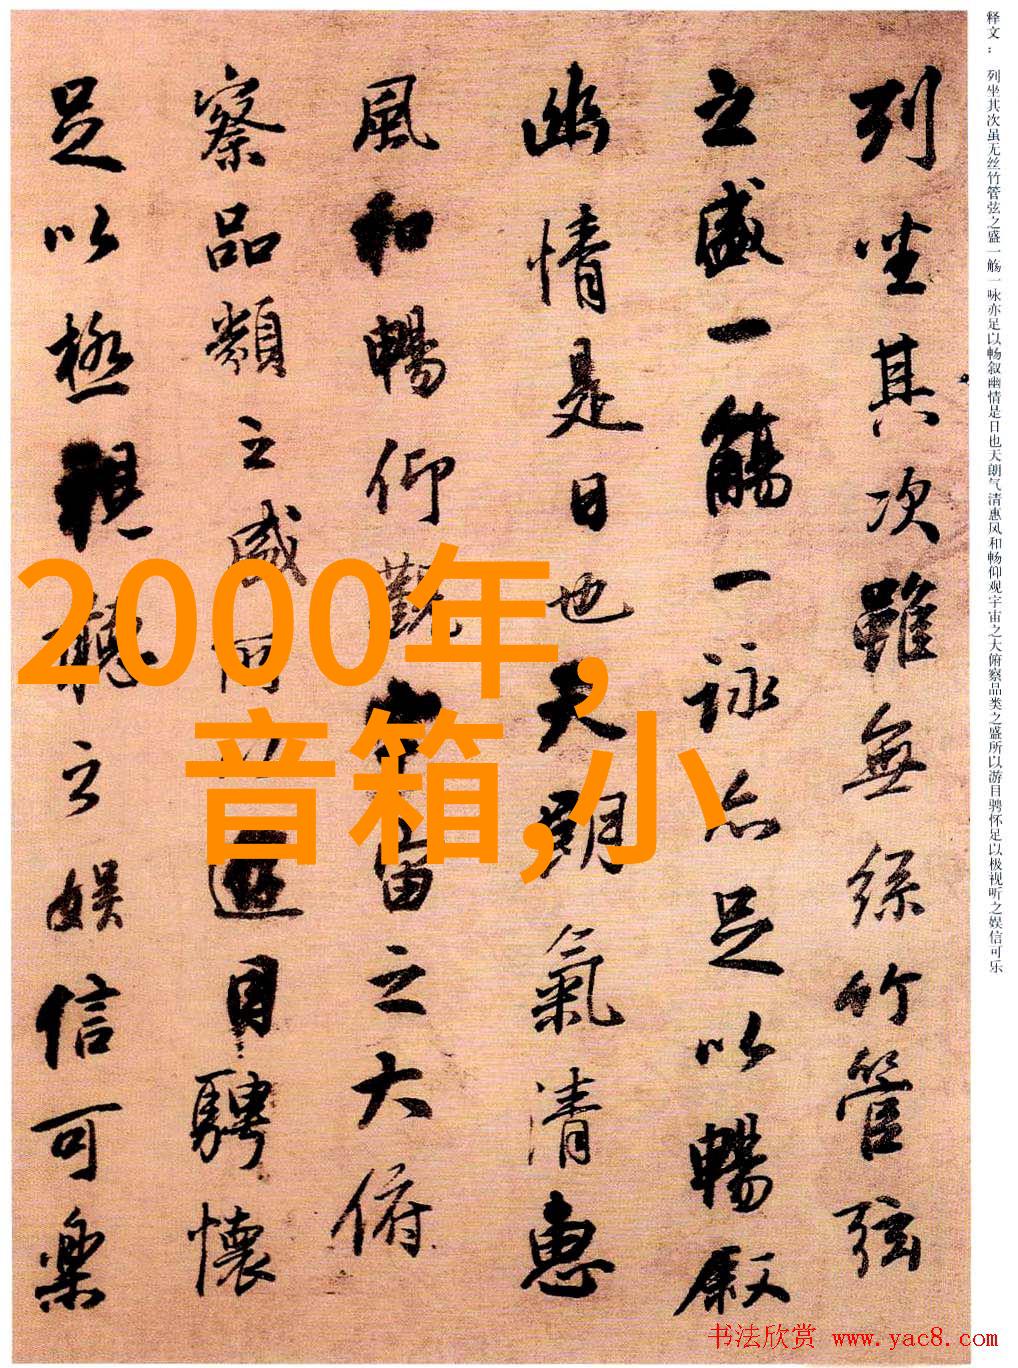 释文： 列坐其次虽无丝竹管弦之盛一觞一咏亦足以畅叙幽情是日也天朗气清惠风和畅仰观宇宙之大俯察品类之盛所以游目骋怀足以极视听之娱信可乐
列坐其次雖無絲竹管弦
之盛一觴一詠亦足以暢叙
幽情是日也天朗氣清惠
風和暢仰觀宇宙之大俯
察品類之盛所以遊目騁懷
足以極視聽之娱信可樂
2000年,
音箱,小
书法欣赏 www.yac8.com